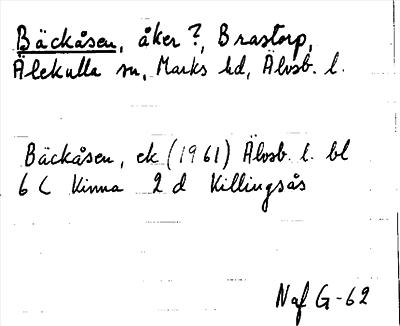 Bäckåsen, åker?, Brastorp,
Älekulla sn, Marks hd, Älvsb. l.
Bäckåsen, ek (1961) Älvsb. l. bl
6 C Kinna 2 d Killingsås
Naf G-62